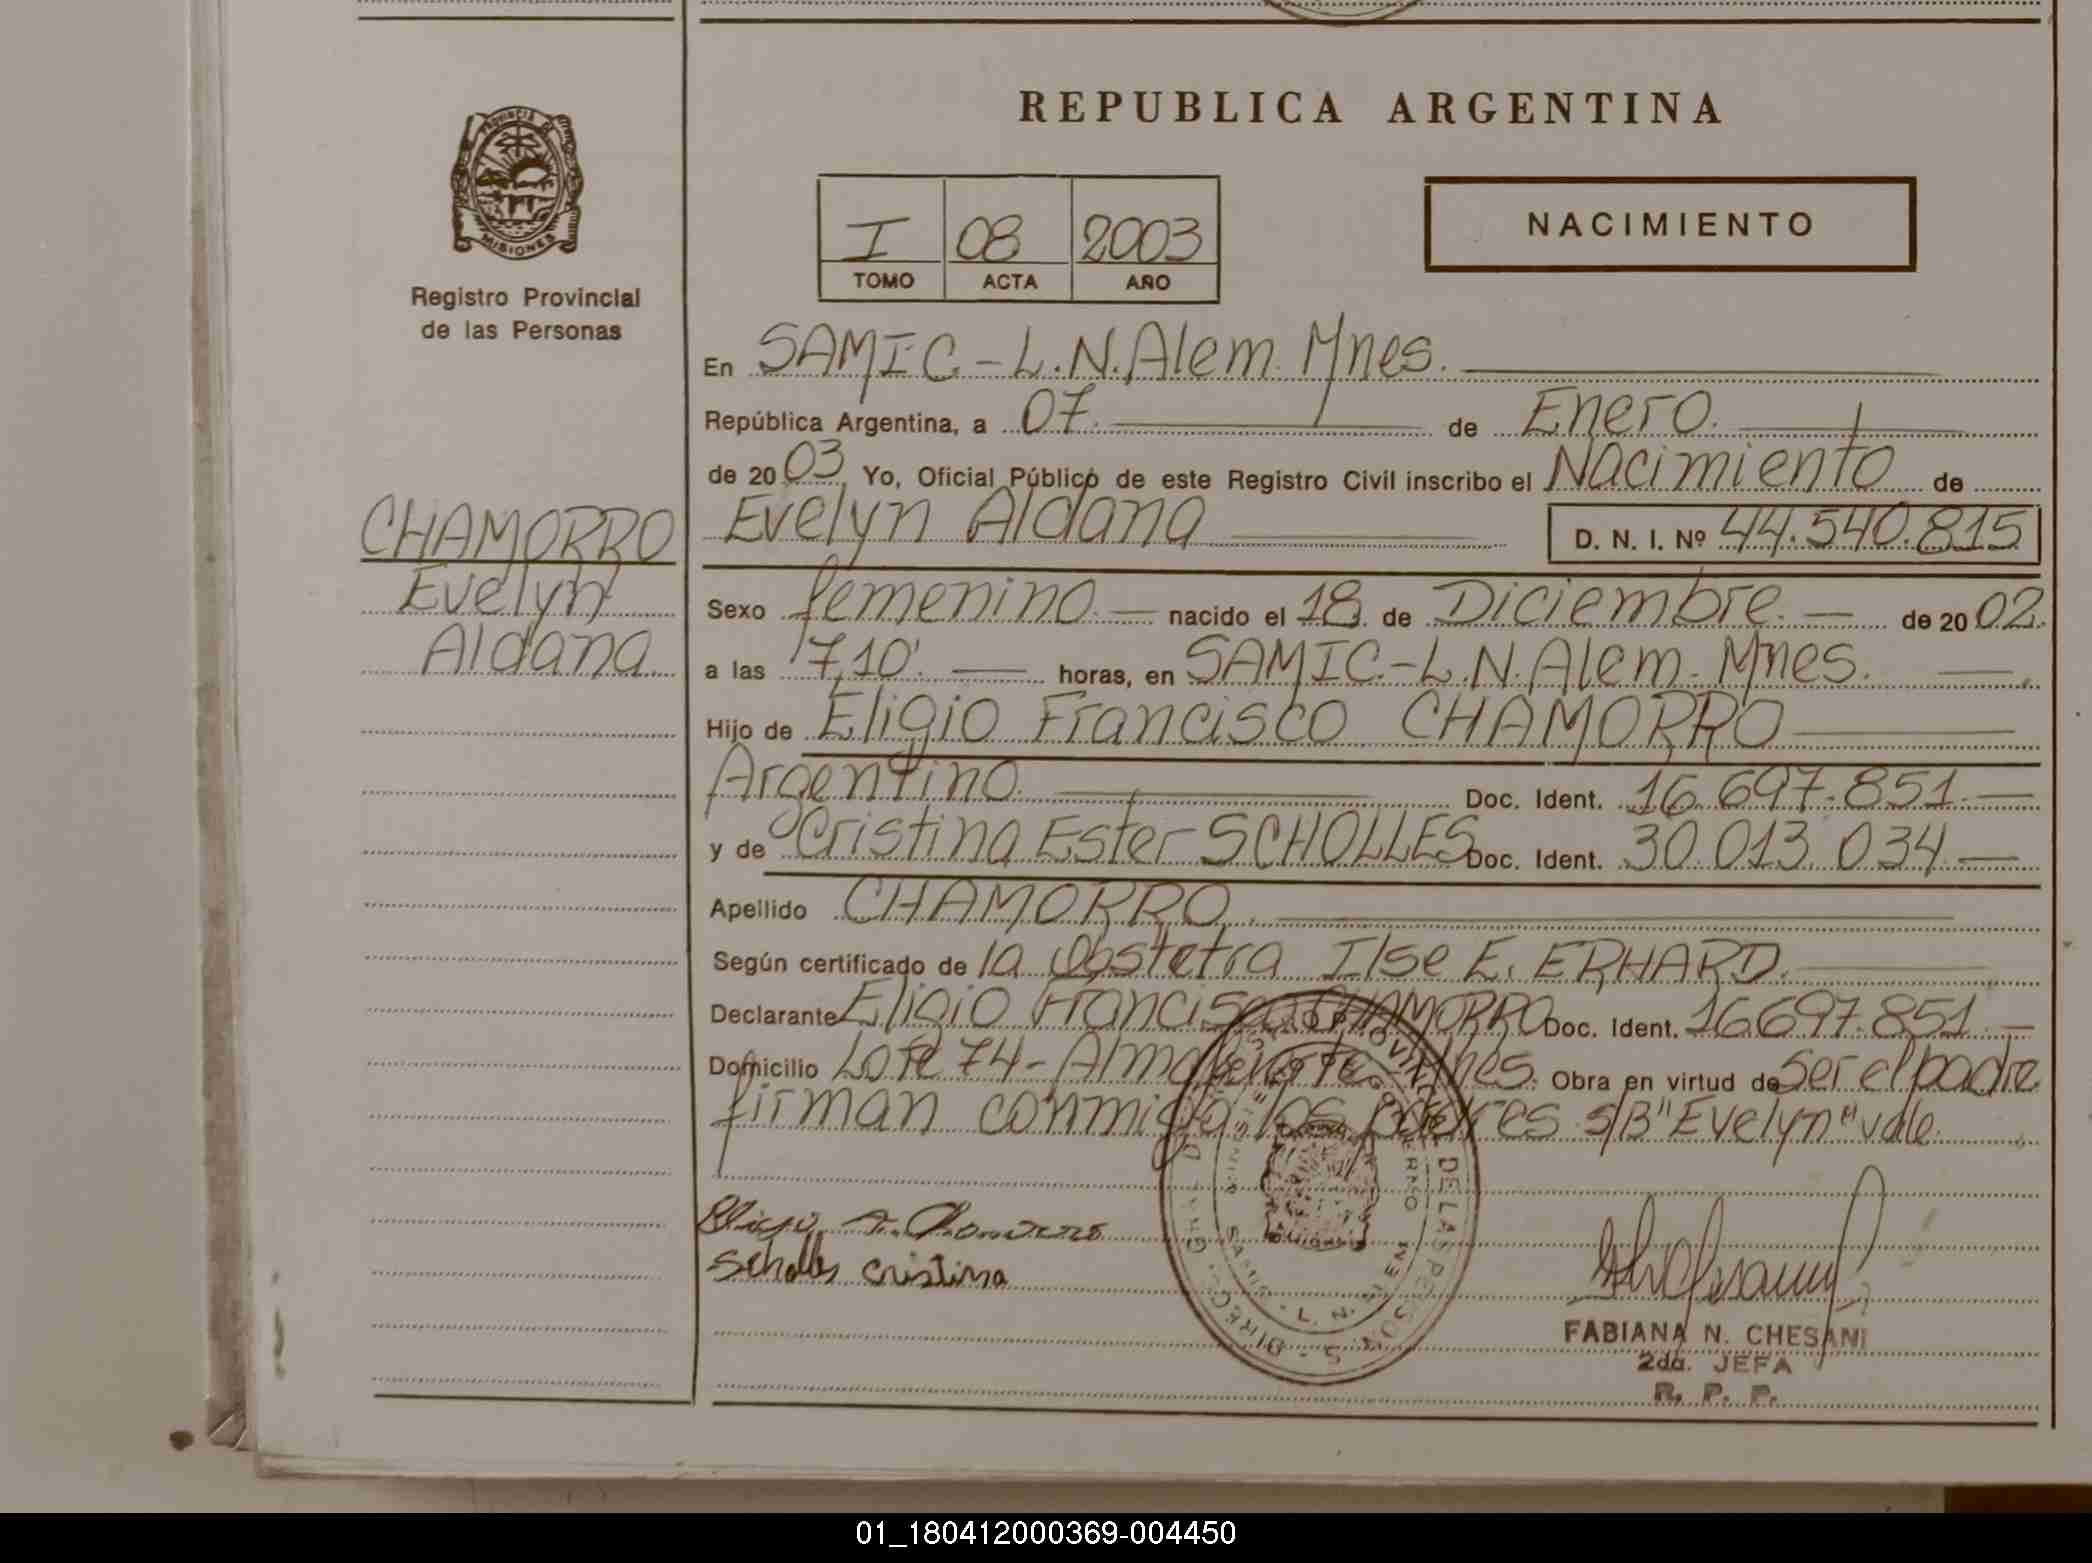 REPUBLICA ARGENTINA
PROVINCIA DE
MISIONES
Registro Provincial
de las Personas
I 08 2003
TOMO ACTA AÑO
NACIMIENTO
En SAMIC-L.N.Alem. Mnes.
República Argentina, a 07. de Enero.
de 2003 Yo, Oficial Público de este Registro Civil inscribo el Nacimiento de
CHAMORRO
Evelyn
Aldana
Evelyn Aldana D. N. I. Nº 44.540.815
Sexo femenino.- nacido el 18 de Diciembre.- de 2002.
a las 7,10'. horas, en SAMIC-L.N.Alem. Mnes.
Hijo de Eligio Francisco CHAMORRO
Argentino. Doc. Ident. 16.697.851.-
y de Cristina Ester SCHOLLES Doc. Ident. 30.013.034.-
Apellido CHAMORRO.
Según certificado de la Obstetra Ilse E. ERHARD.
Declarante Eligio Francisco CHAMORRO Doc. Ident. 16.697.851.-
Domicilio Lote 74- Mnes. Obra en virtud de ser el padre
firman conmigo los padres s/B "Evelyn" vale.
Scholles Cristina
FABIANA N. CHESANI
2da. JEFA
R. P. P.
01_180412000369-004450